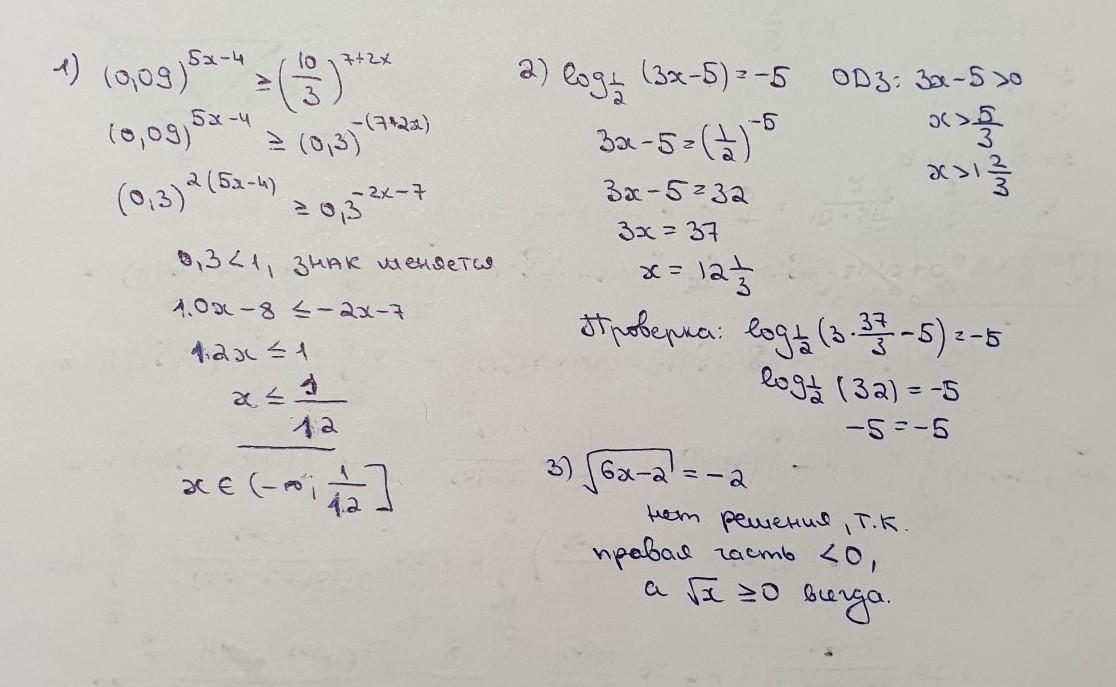 1) (0,09)^(5x-4) ≥ (10/3)^(7+2x)
(0,09)^(5x-4) ≥ (0,3)^(-(7+2x))
(0,3)^(2(5x-4)) ≥ 0,3^(-2x-7)
0,3<1, знак меняется
10x-8 ≤ -2x-7
12x ≤ 1
x ≤ 1/12
x ∈ (-∞; 1/12]
2) log_(1/2) (3x-5) = -5 ОДЗ: 3x-5>0
3x-5 = (1/2)^(-5) x > 5/3
3x-5 = 32 x > 1 2/3
3x = 37
x = 12 1/3
Проверка: log_(1/2) (3·37/3 - 5) = -5
log_(1/2) (32) = -5
-5 = -5
3) √(6x-2) = -2
нет решения, т.к.
правая часть <0,
а √x ≥ 0 всегда.